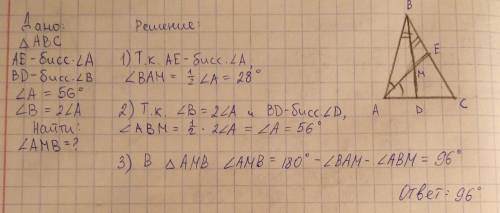 Дано:
△ABC
AE-бисс.∠A
BD-бисс.∠B
∠A = 56°
∠B = 2∠A
Найти:
∠AMB=?
Решение:
1) Т.к. AE-бисс.∠A,
∠BAM = 1/2 ∠A = 28°
2) Т.к. ∠B=2∠A и BD-бисс.∠D,
∠ABM = 1/2 · 2∠A = ∠A = 56°
3) В △AMB ∠AMB = 180° - ∠BAM - ∠ABM = 96°
Ответ: 96°
B
E
M
A
D
C